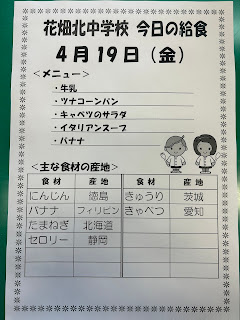 花畑北中学校 今日の給食
4月19日（金）
＜メニュー＞
・牛乳
・ツナコーンパン
・キャベツのサラダ
・イタリアンスープ
・バナナ
＜主な食材の産地＞
食材 産地 食材 産地
にんじん 徳島 きゅうり 茨城
バナナ フィリピン きゃべつ 愛知
たまねぎ 北海道
セロリー 静岡